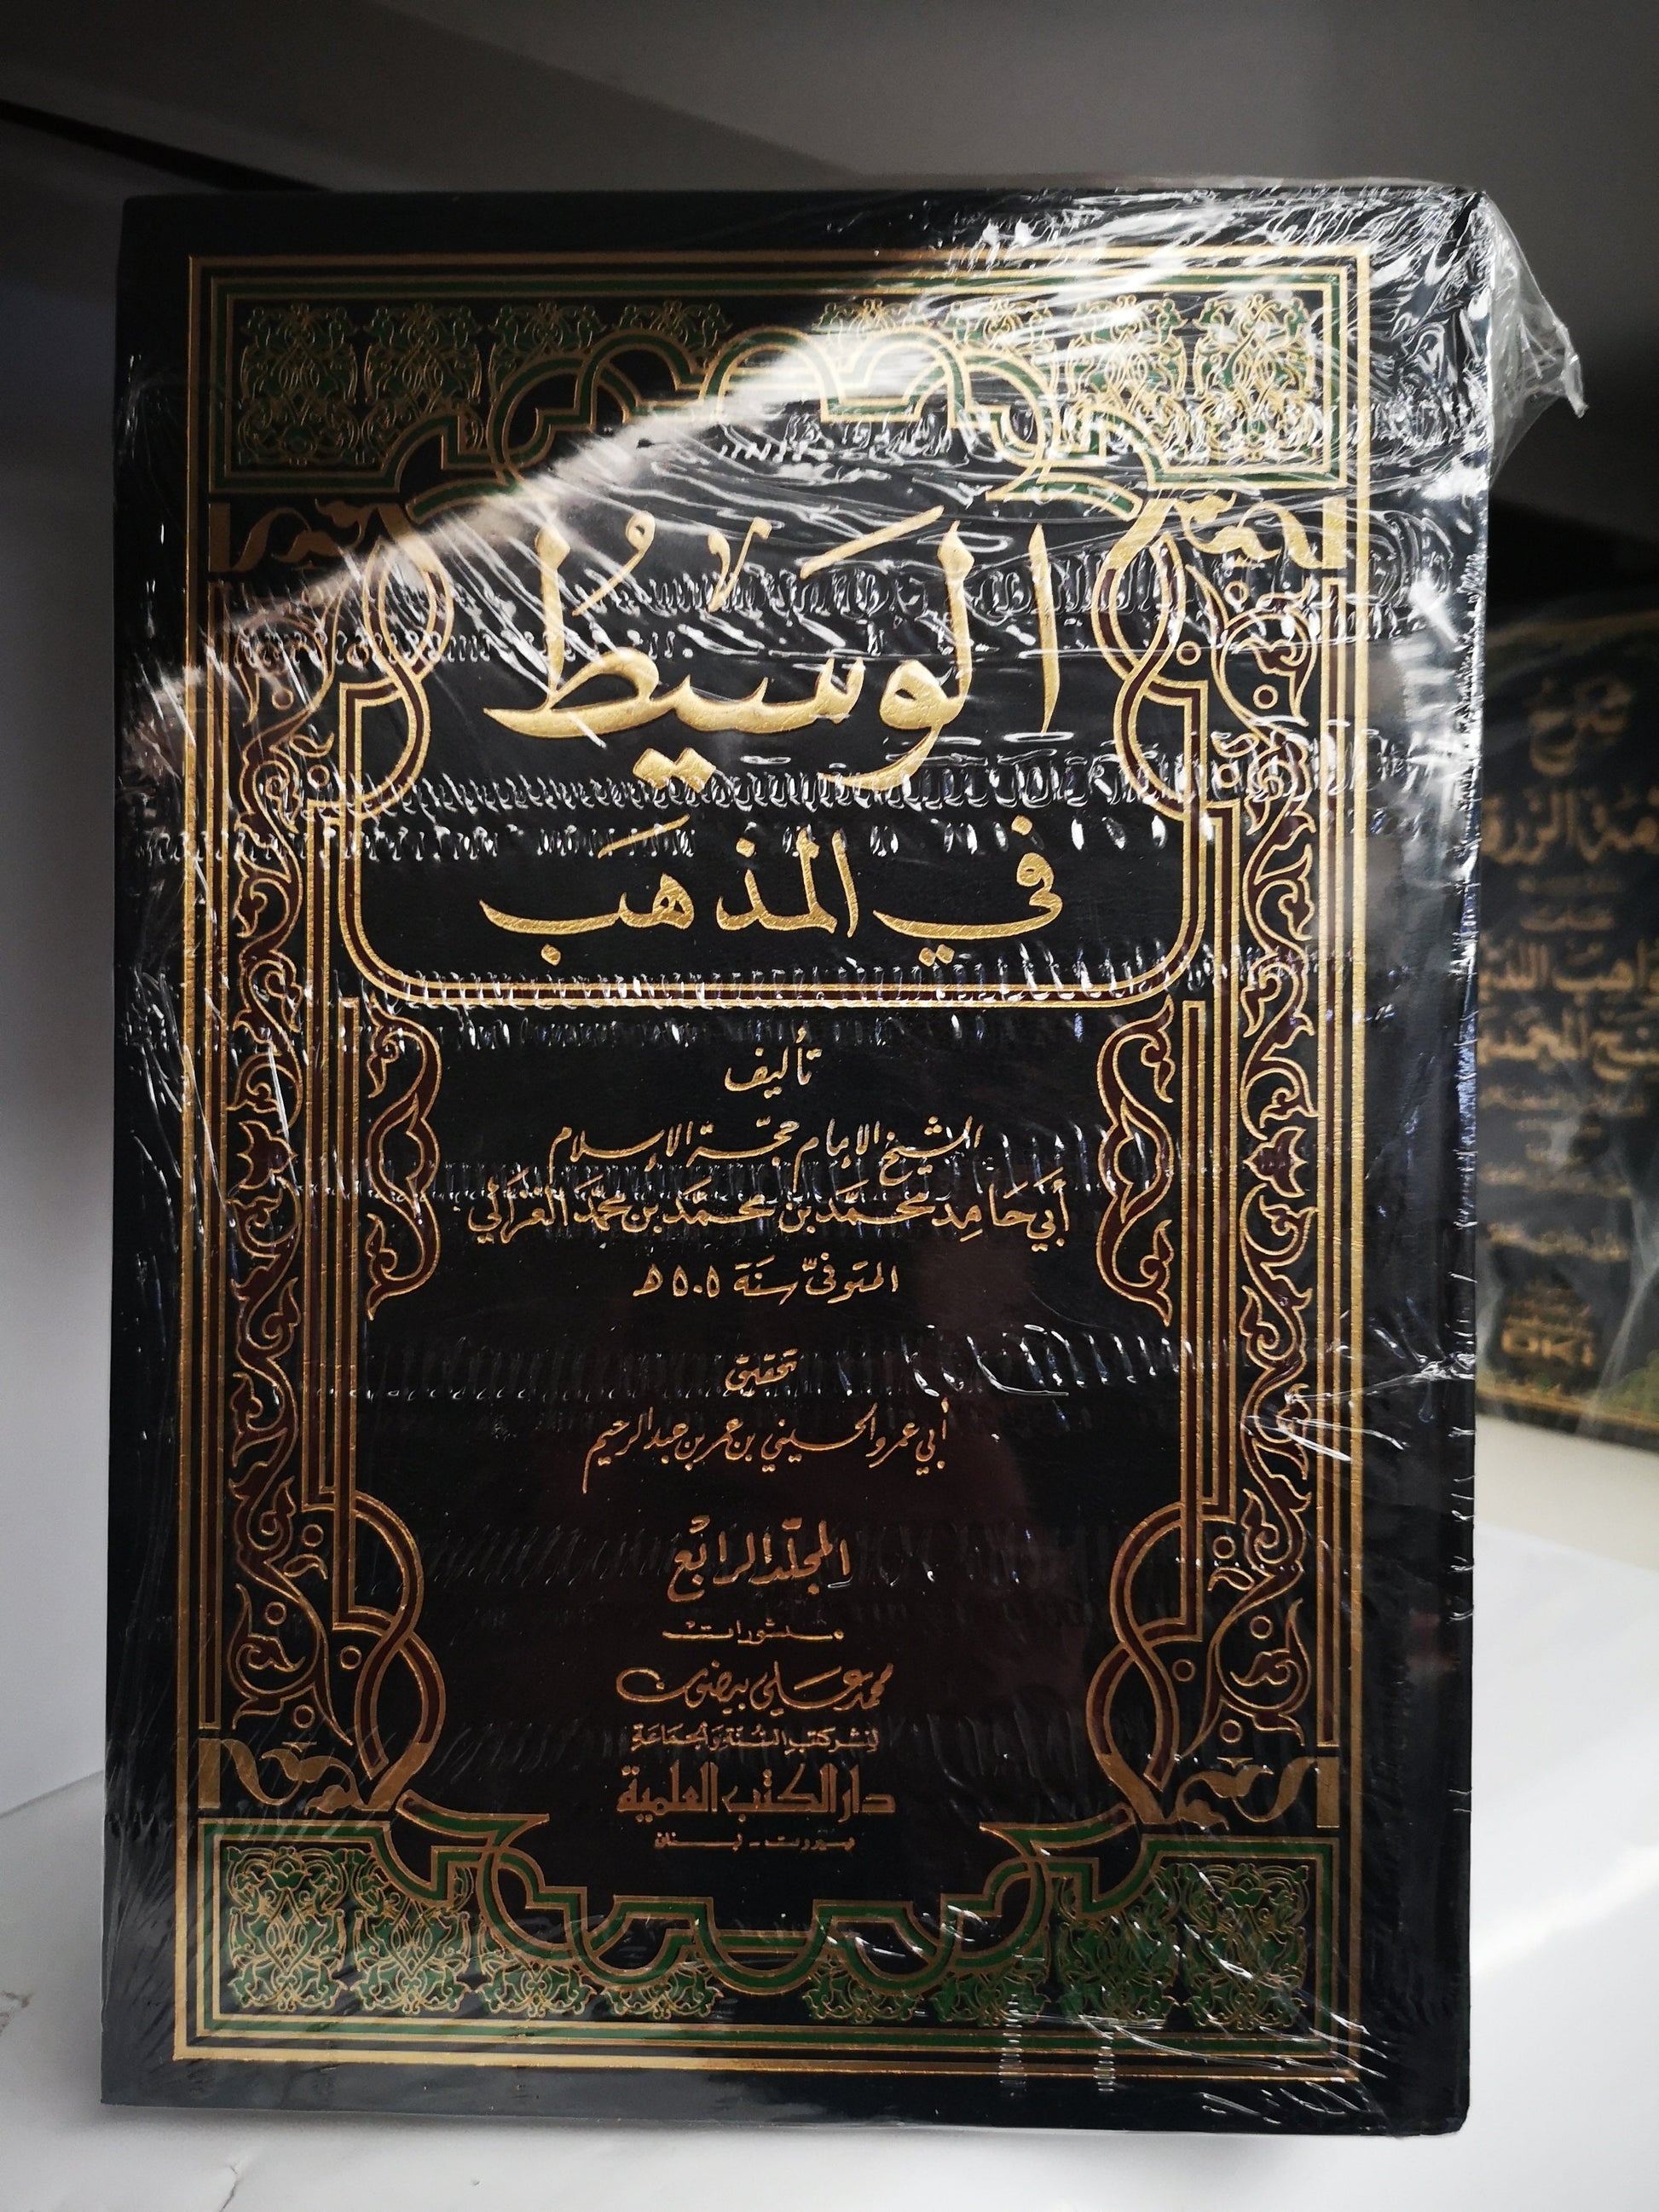 الوَسيطُ
في المذهَب
تأليف
الشيخ الإمام حجّة الإسلام
أبي حَامِد محمَّد بن محمَّد بن محمَّد الغزالي
المتوفىّ سنَة ٥٠٥ هـ
تحقيق
أبي عمرو الحسيني بن عمر بن عبد الرحيم
المجلّد الرابع
منشورات
محمد علي بيضون
لنشر كتب السُّنة والجماعة
دار الكتب العلمية
بيروت - لبنان
شرح